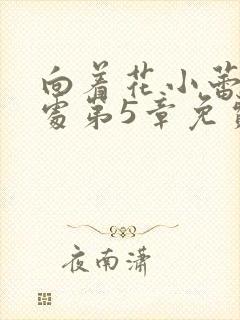 向着花小蕾
处第5章免
夜南潇